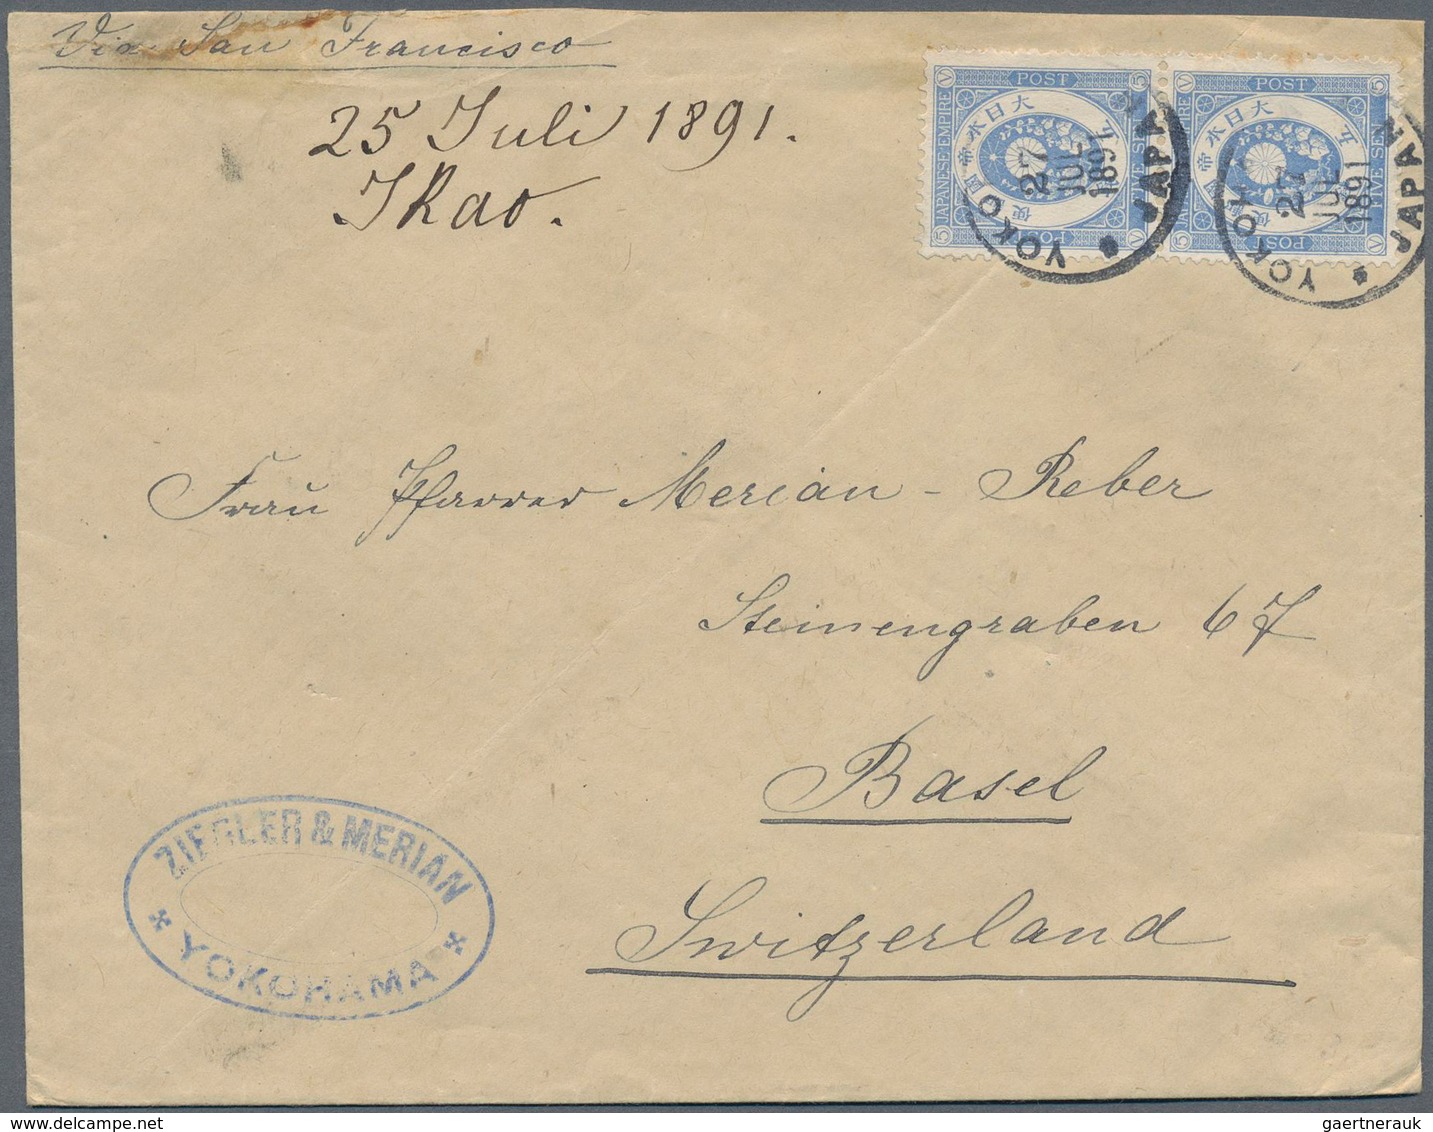 Via San Francisco
25 Juli 1891.
Ikao.
POST
JAPANESE EMPIRE
FIVE SEN
大日本帝國郵便
POST
5 V 5 V
YOKOHAMA JAPAN
27
JUL
1891
POST
JAPANESE EMPIRE
FIVE SEN
大日本帝
POST
5 V 5 V
YOKOHAMA JAPAN
27
JUL
1891
Frau Pfarrer Merian-Reber
Steinengraben 67
Basel
Switzerland
ZIEGLER & MERIAN
YOKOHAMA
gaertnerauk